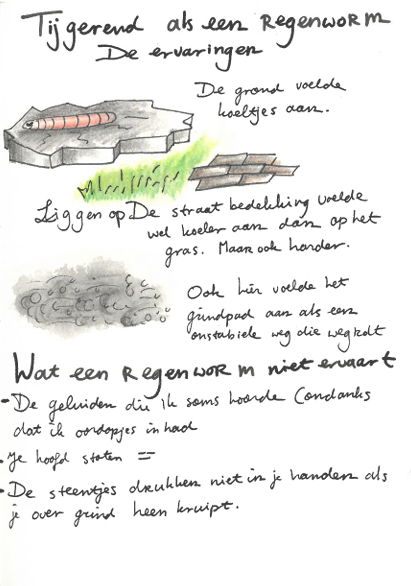 Tijgerend als een Regenworm
De ervaringen
De grond voelde
koeltjes aan.
Liggen op De straat bedekking voelde
wel koeler aan dan op het
gras. Maar ook harder.
Ook hier voelde het
grindpad aan als een
onstabiele weg die wegrolt
Wat een Regenworm niet ervaart
- De geluiden die ik soms hoorde (ondanks
dat ik oordopjes in had
- Je hoofd stoten
- De steentjes drukken niet in je handen als
je over grind heen kruipt.